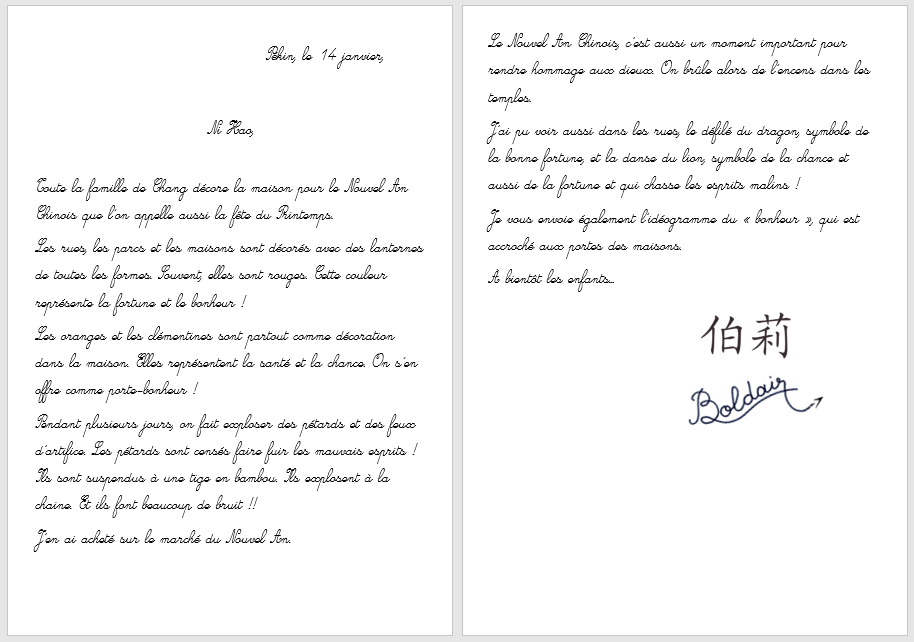 Pékin, le 14 janvier,
Ni Hao,
Toute la famille de Chang décore la maison pour le Nouvel An
Chinois que l'on appelle aussi la fête du Printemps.
Les rues, les parcs et les maisons sont décorés avec des lanternes
de toutes les formes. Souvent, elles sont rouges. Cette couleur
représente la fortune et le bonheur !
Les oranges et les clémentines sont partout comme décoration
dans la maison. Elles représentent la santé et la chance. On s'en
offre comme porte-bonheur !
Pendant plusieurs jours, on fait exploser des pétards et des feux
d'artifice. Les pétards sont censés faire fuir les mauvais esprits !
Ils sont suspendus à une tige en bambou. Ils explosent à la
chaine. Et ils font beaucoup de bruit !!
J'en ai acheté sur le marché du Nouvel An.
Le Nouvel An Chinois, c'est aussi un moment important pour
rendre hommage aux dieux. On brûle alors de l'encens dans les
temples.
J'ai pu voir aussi dans les rues, le défilé du dragon, symbole de
la bonne fortune, et la danse du lion, symbole de la chance et
aussi de la fortune et qui chasse les esprits malins !
Je vous envoie également l'idéogramme du « bonheur », qui est
accroché aux portes des maisons.
À bientôt les enfants...
伯莉
Boldair